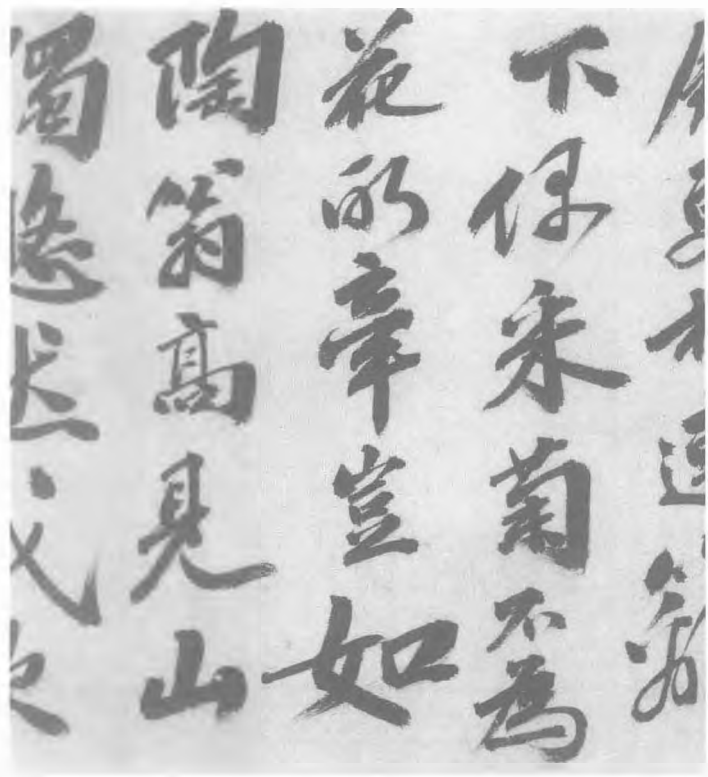 籬
下采菊不為
花所牽豈如
陶翁高見山
獨悠然